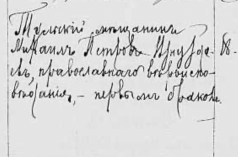 Тульскій мѣщанинъ
Михаилъ Петровъ 68.
православнаго вѣроиспо-
вѣданія, – первымъ бракомъ.